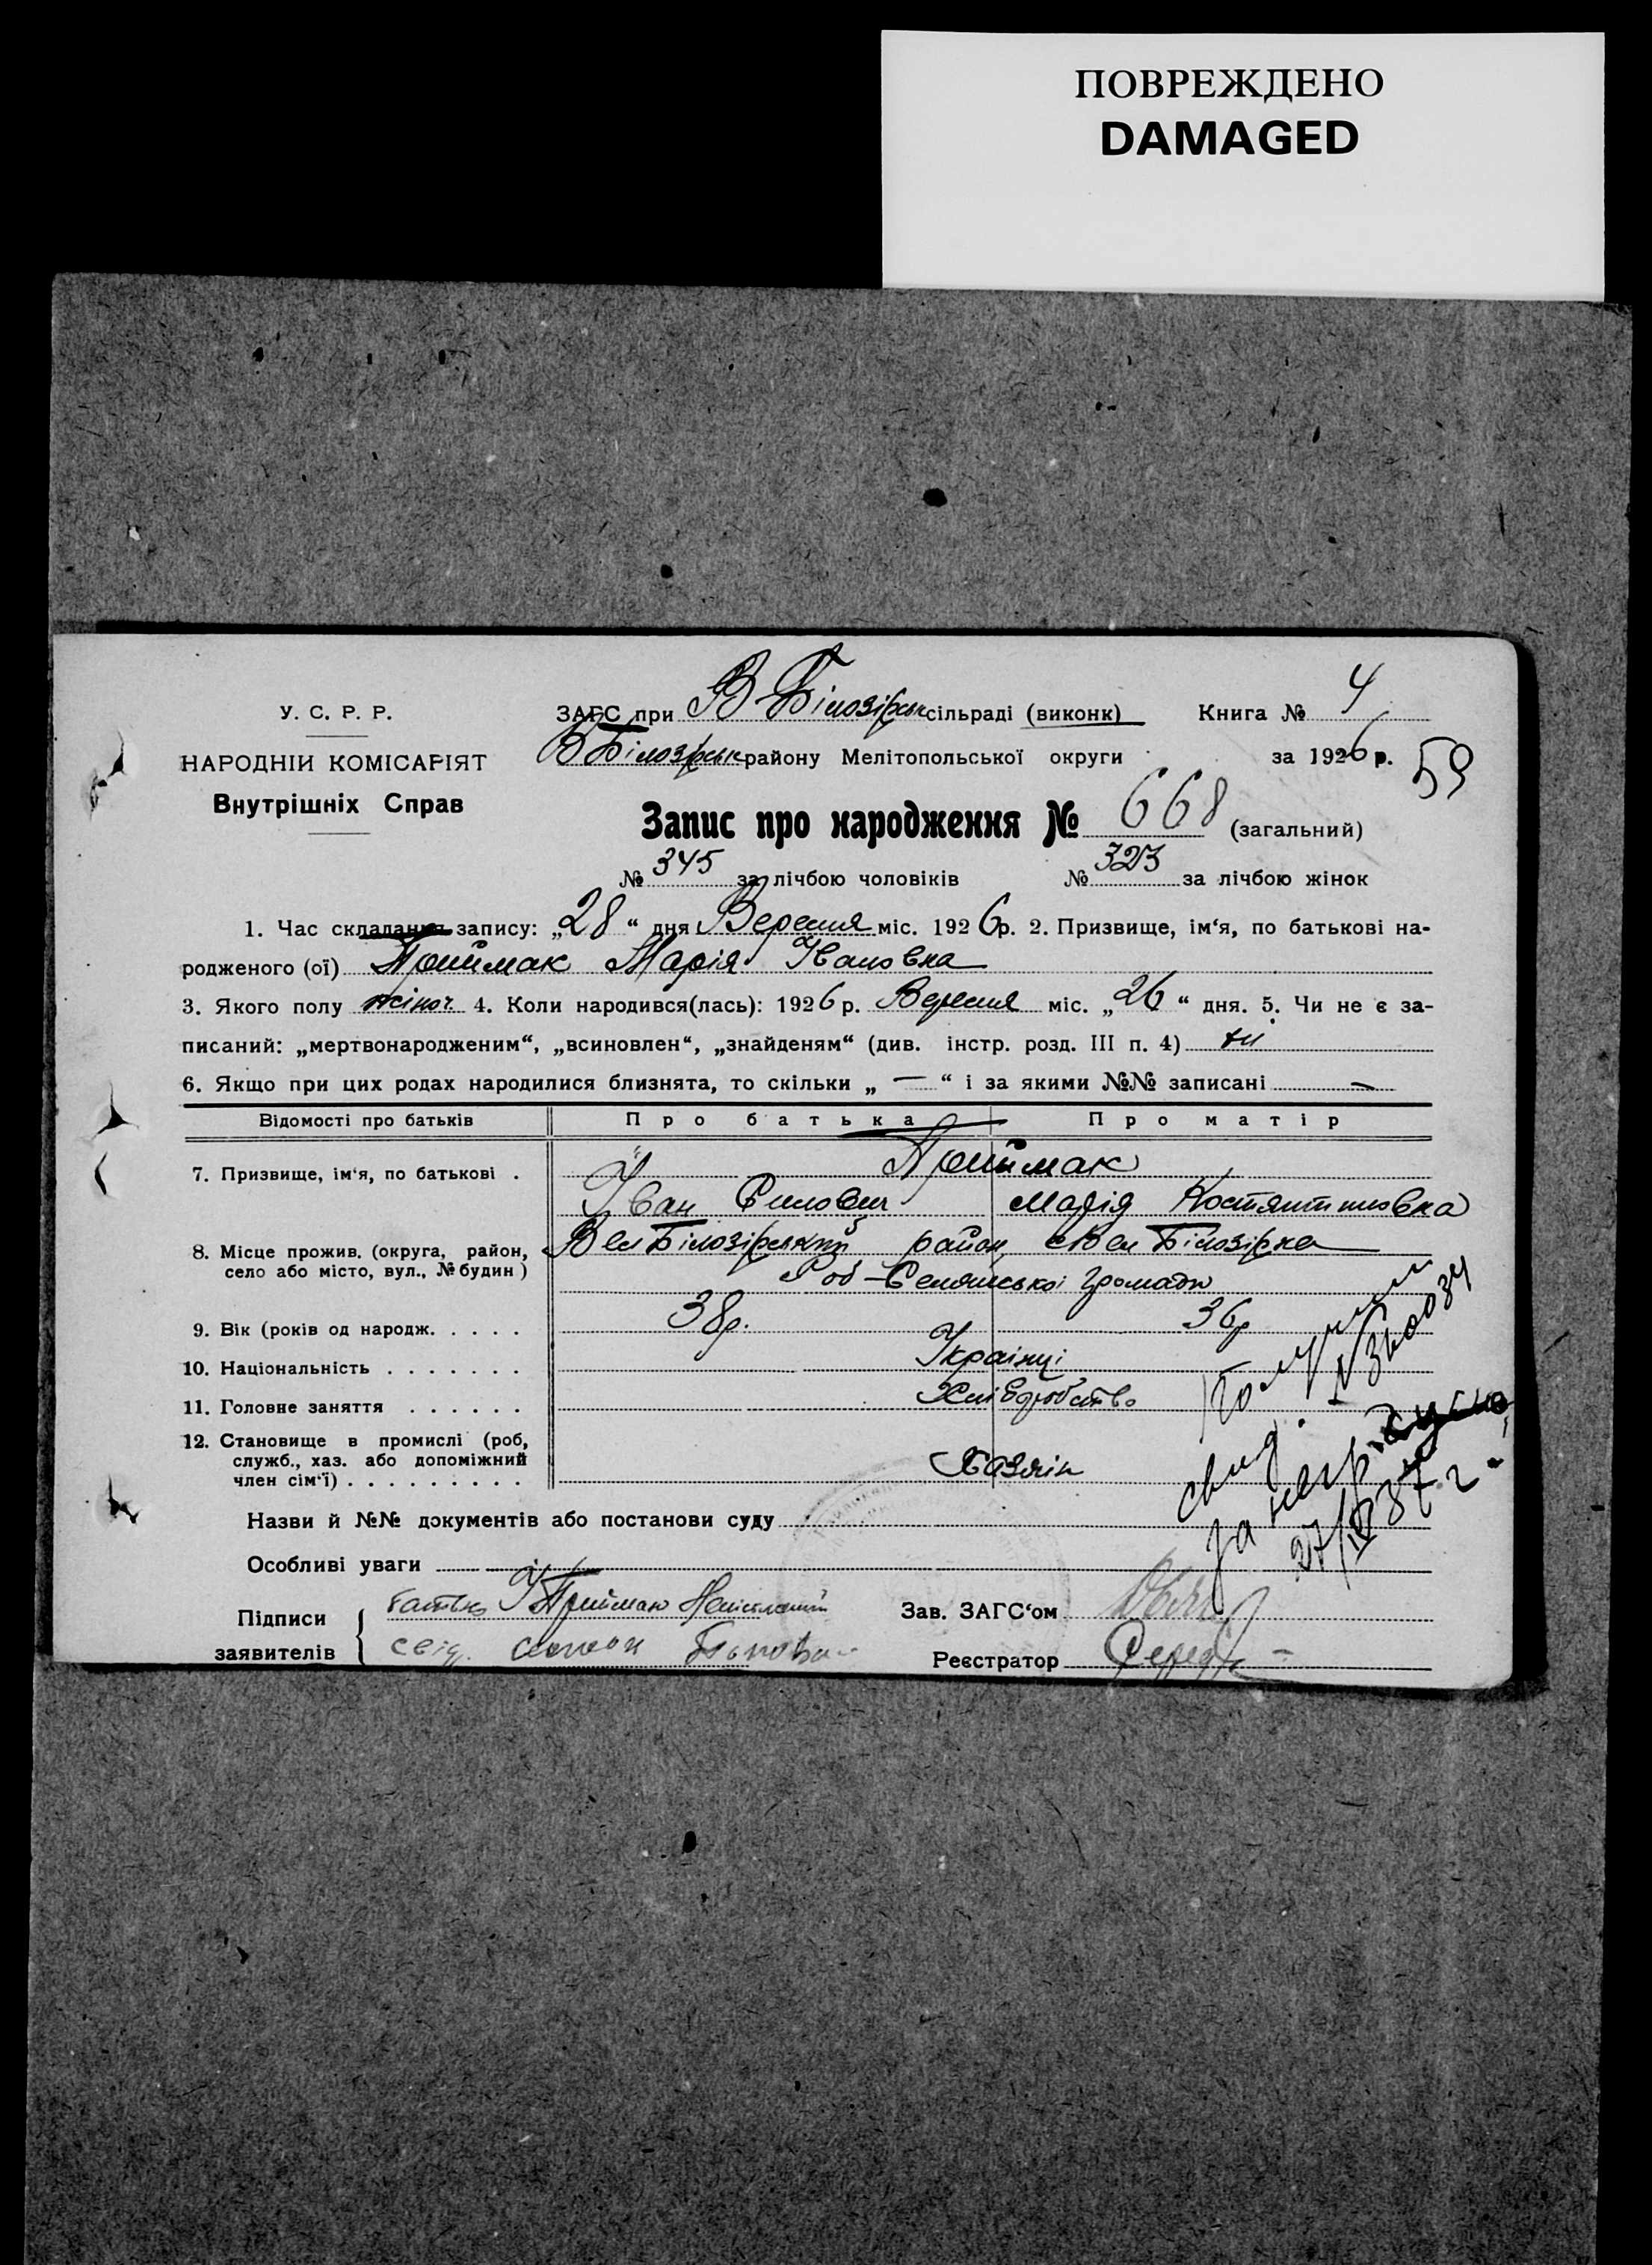 ПОВРЕЖДЕНО
DAMAGED
У. С. Р. Р.
НАРОДНІЙ КОМІСАРІЯТ
Внутрішніх Справ
ЗАГС при В Білозірськ сільраді (виконк) Книга № 4
В Білозірськ району Мелітопольської округи за 1926 р. 59
Запис про народження № 668 (загальний)
№ 345 за лічбою чоловіків № 323 за лічбою жінок
1. Час складання запису: „28“ дня Вересня міс. 1926 р. 2. Призвище, ім‘я, по батькові на-
родженого (ої) Приймак Марія Івановна
3. Якого полу жіноч. 4. Коли народився(лась): 1926 р. Вересня міс. „26“ дня. 5. Чи не є за-
писаний: „мертвонародженим“, „всиновлен“, „знайденям“ (див. інстр. розд. III п. 4) ні
6. Якщо при цих родах народилися близнята, то скільки „ — “ і за якими №№ записані —
Відомості про батьків Про батька Про матір
7. Призвище, ім‘я, по батькові . Приймак
Іван Марія Костянтиновна
8. Місце прожив. (округа, район, село або місто, вул., № будин) Вел Білозірський район, с Вел Білозірка
Роб-Селянської громади
9. Вік (років од народж. . . . . 38р. 36р
10. Національність . . . . . . . Українці
11. Головне заняття . . . . . . Хліборобство
12. Становище в промислі (роб, служб., хаз. або допоміжний член сім‘ї) . . . . . . . . . Хазяїн
Получили
свид.
за
27/IX 37 г.
Назви й №№ документів або постанови суду
Особливі уваги
Підписи заявителів
батько І Приймак
свід.
Зав. ЗАГС‘ом
Реєстратор